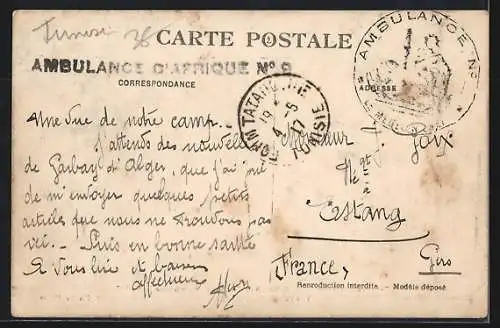 Tunisie 36
CARTE POSTALE
AMBULANCE D'AFRIQUE Nº 9
CORRESPONDANCE
ADRESSE
AMBULANCE Nº
FOUM TATAHOUINE
19
4 -5
17
TUNISIE
Une vue de notre camp.
J'attends des nouvelles
de Garbay d'Alger, que j'ai prié
de m'envoyer quelques petits
articles que nous ne trouvons pas
ici. - Suis en bonne santé
A vous lire et baisers
affectueux
Monsieur Joix
Négt
Estang
Gers
France,
Reproduction interdite. - Modèle déposé